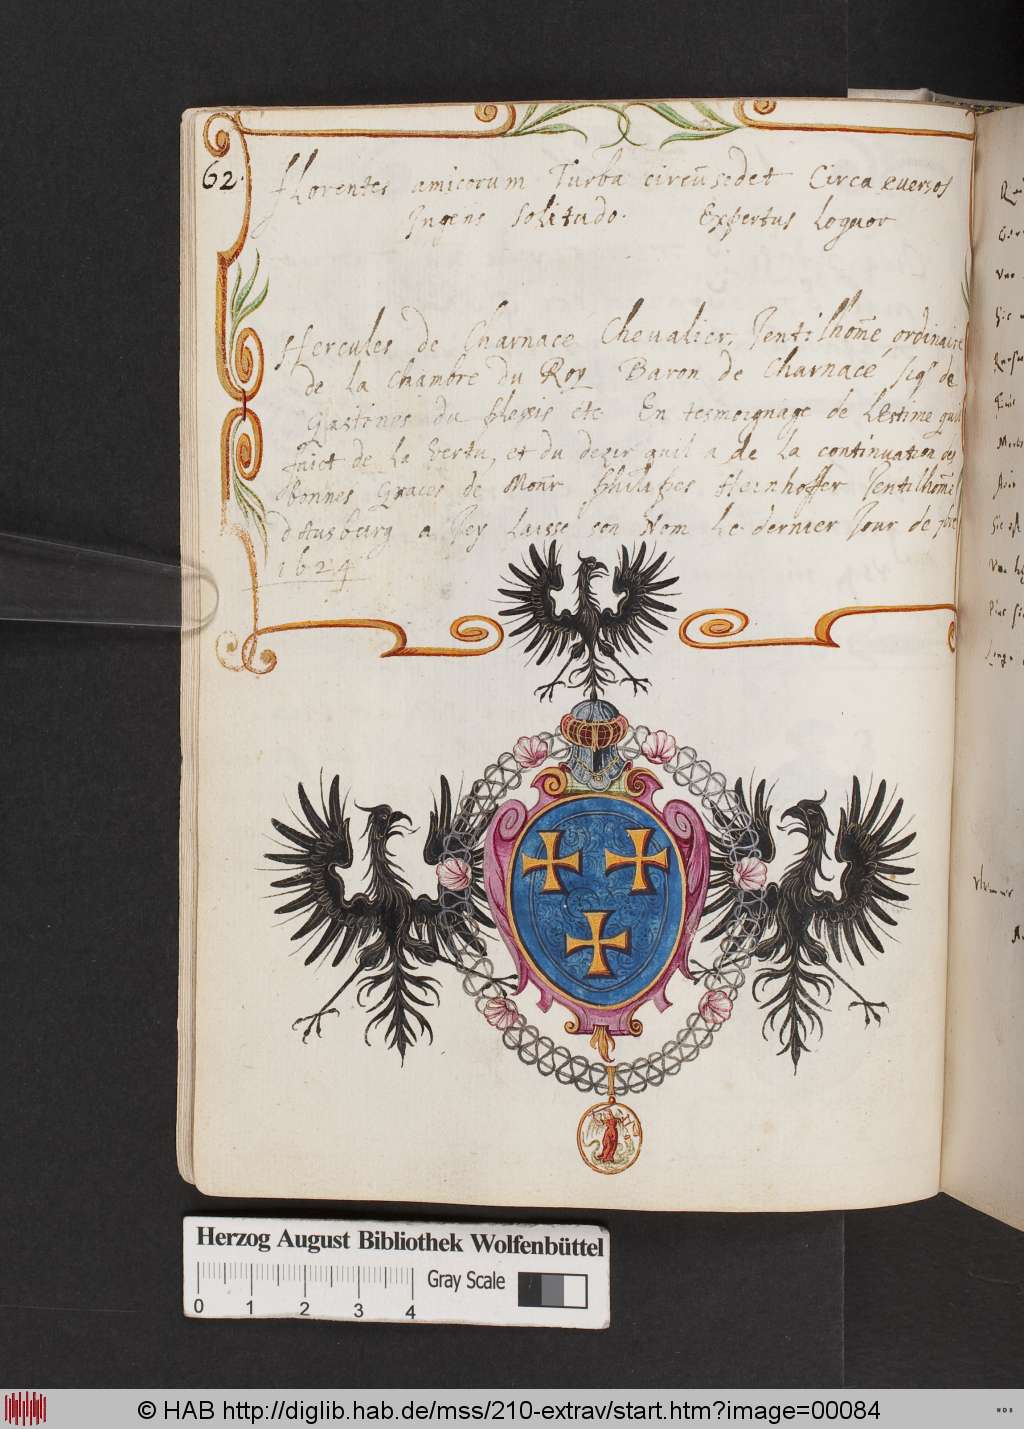 62.
Florentes amicorum Turba circūsedet Circa eversos
Ingens Solitudo. Expertus loquor
Hercules de Charnacé Chevalier, Jentilhom̄e ordinaire
de la Chambre du Roy Baron de Charnacé, sigr de
Gastines du plessis etc En tesmoignage de lestime quil
faict de la Vertu, et du dezir quil a de la continuation des
bonnes Graces de Monr philippes Heinhoffer Jentilhom̄e
d'Ausbourg a Jcy laisse son Nom le dernier Jour de
1624
Herzog August Bibliothek Wolfenbüttel
Gray Scale
0 1 2 3 4
© HAB http://diglib.hab.de/mss/210-extrav/start.htm?image=00084